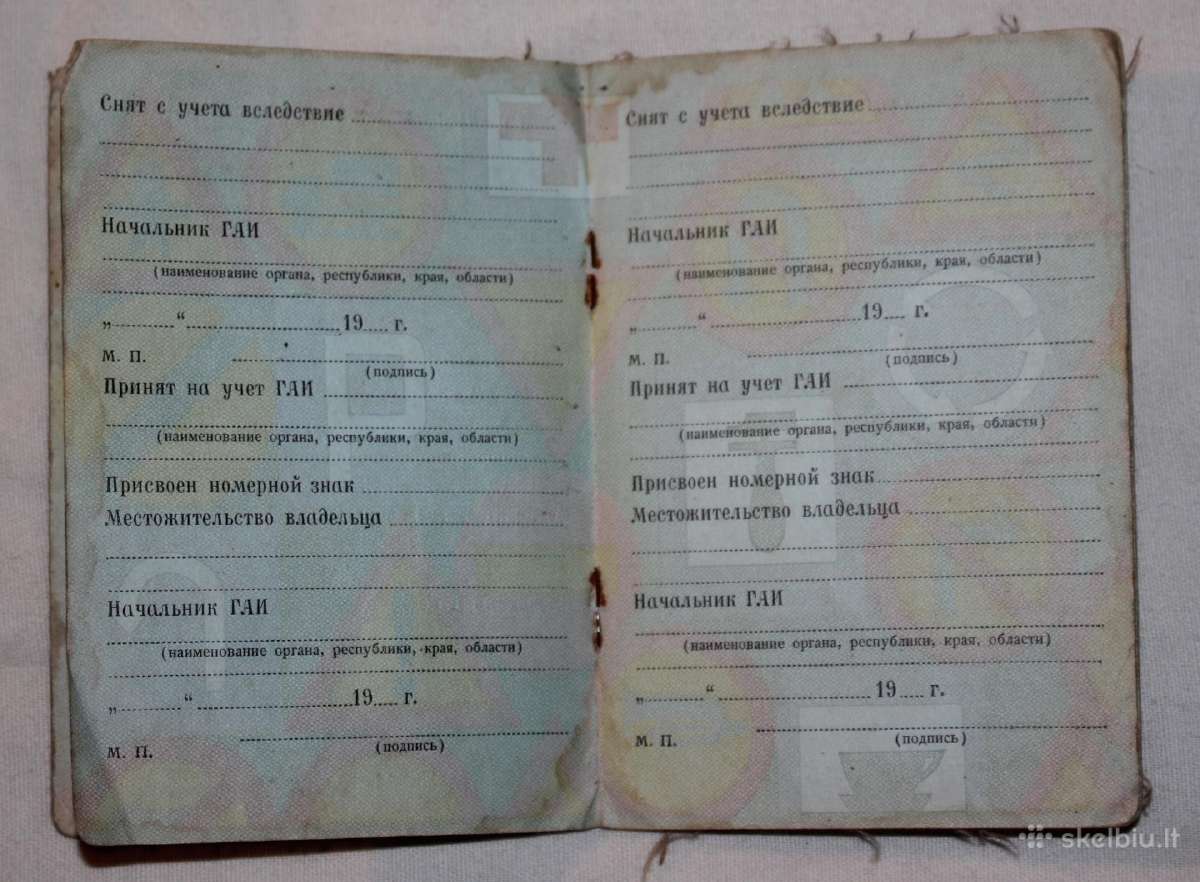 Снят с учета вследствие
Начальник ГАИ
(наименование органа, республики, края, области)
„ “ 19 г.
М. П.
(подпись)
Принят на учет ГАИ
(наименование органа, республики, края, области)
Присвоен номерной знак
Местожительство владельца
Начальник ГАИ
(наименование органа, республики, края, области)
„ “ 19 г.
М. П.
(подпись)
Снят с учета вследствие
Начальник ГАИ
(наименование органа, республики, края, области)
„ “ 19 г.
М. П.
(подпись)
Принят на учет ГАИ
(наименование органа, республики, края, области)
Присвоен номерной знак
Местожительство владельца
Начальник ГАИ
(наименование органа, республики, края, области)
„ “ 19 г.
М. П.
(подпись)
skelbiu.lt